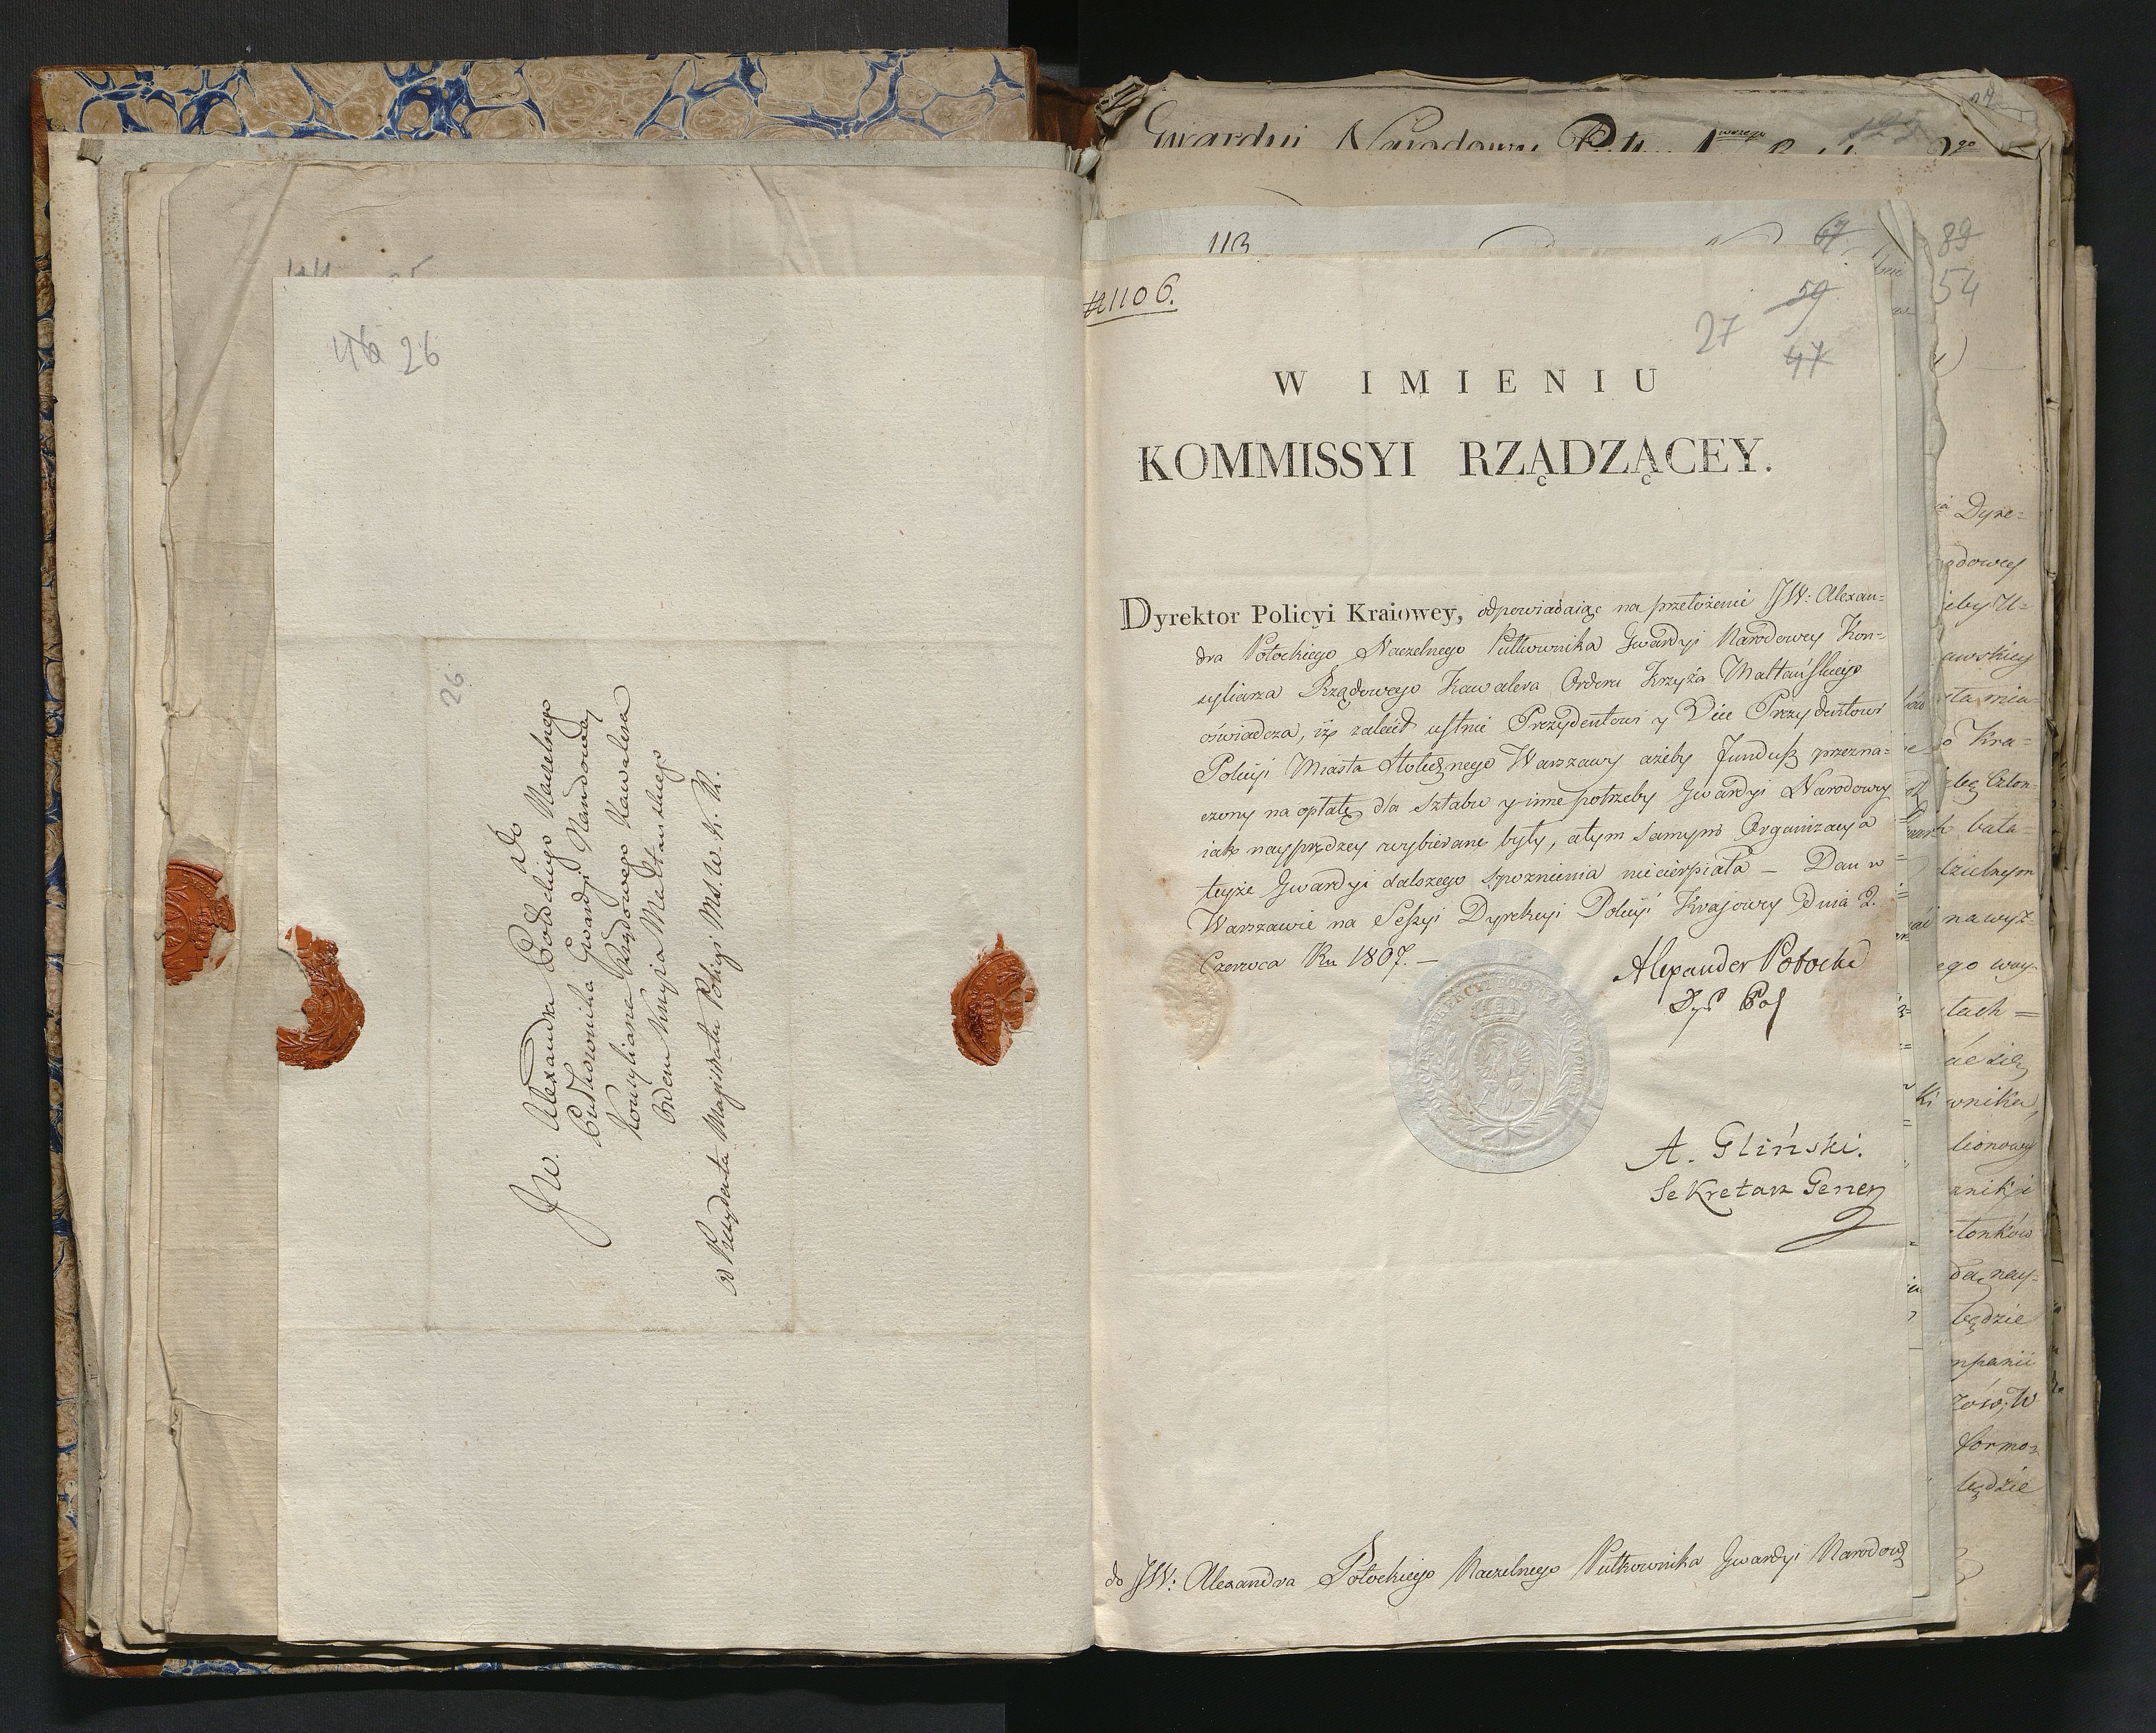 46 26
26
Do
JW. Alexandra Potockiego Naczelnego
Pułkownika Gwardyi Narodowey
Konsyliarza Rządowego Kawalera
Orderu Krzyża Maltanskiego
od Prezydenta Magistratu Policyi M. S. W. K. R.
Gwardyi Narodowy
113
67
89
54
1106.
27
59
47
W IMIENIU
KOMMISSYI RZĄDZĄCEY.
Dyrektor Policyi Kraiowey, odpowiadaiąc na przełożenie JW: Alexan=
dra Potockiego Naczelnego Pułkownika Gwardyi Narodowey Kon=
syliarza Rządowego Kawalera Orderu Krzyża Maltańskiego
oświadcza, iż zalecił ustnie Prezydentowi y Vice Prezydentowi
Policyi Miasta Stołecznego Warszawy ażeby fundusz przezna=
czony na opłatę dla sztabu y inne potrzeby Gwardyi Narodowy
iak nayprędzey wybierane były, a tym samym Organizacya
teyże Gwardyi dalszego spoznienia niecierpiała — Dan w
Warszawie na Sessyi Dyrekcyi Policyi Krajowey Dnia 2.
Czerwca Ru 1807. —
Alexander Potocki
Dyr Pol
A. Gliński.
Sekretarz Gener
do JW: Alexandra Potockiego Naczelnego Pułkownika Gwardyi Narodowy